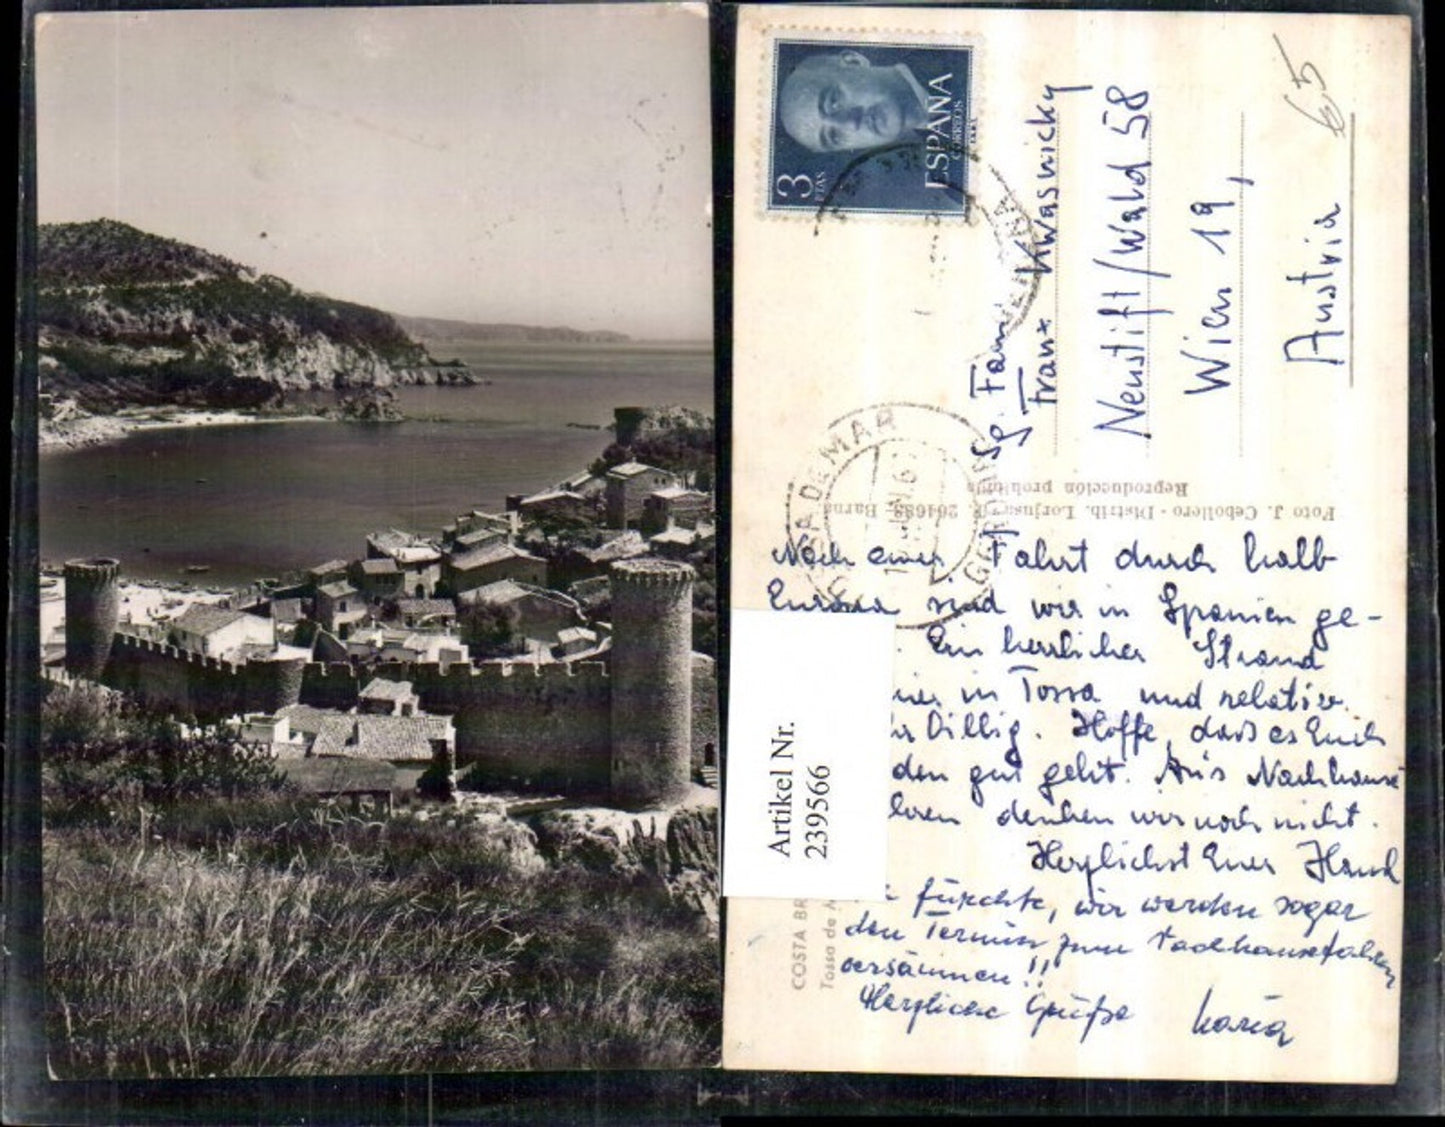 3 PTAS
ESPAÑA
CORREOS
TOSSA DE MAR
GERONA
65
Sg. Fam.
Franz Kwasnicky
Neustift/Wald 58
Wien 19,
Austria
Reproducción prohibida
Foto J. Cebollero - Distrib. Lorjusa-T. 264688 Barna
Nach einer Fahrt durch halb
Europa sind wir in Spanien ge-
Ein herrlicher Strand
in Tossa und relativ
billig. Hoffe, dass es Euch
den gut geht. An's Nachhause
denken wir noch nicht.
Herzlichst Euer
fürchte, wir werden sogar
den Termin zum Nachhausefahren
versäumen!!
Herzliche Grüße Maria
Artikel Nr.
239566
COSTA BR
Tossa de M